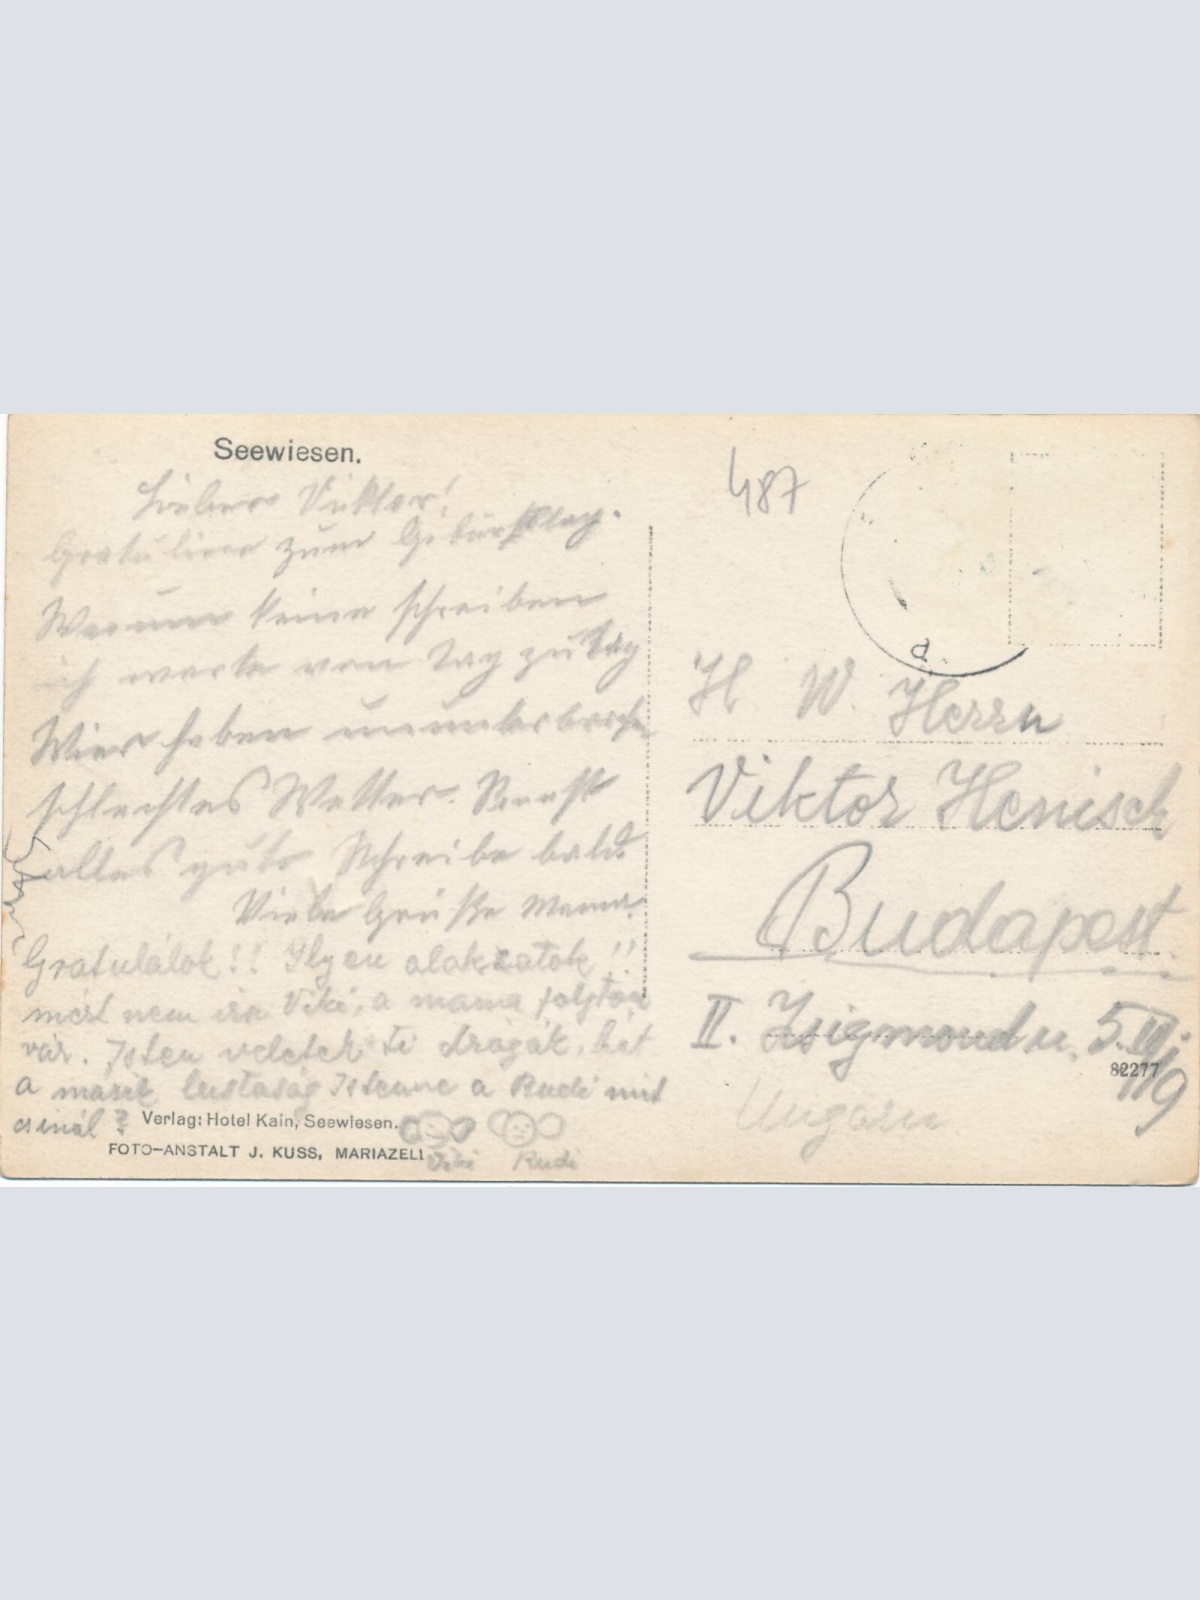 Seewiesen.
Lieber Viktor!
Gratuliere zum Geburtstag.
Warum keine schreiben
ich warte von Tag zu Tag
Wier haben ununterbroch
schlechtes Wetter. Sonst
alles gute Schreibe bald
Viele Grüße Mama.
Gratulálok!! Ilyen alakzatok!!
mért nem ir Viki, a mama folyton
vár. Isten veletek ti drágák, hát
a másik lustaság Istenne a Rudi mit
csinál?
Verlag: Hotel Kain, Seewiesen.
FOTO-ANSTALT J. KUSS, MARIAZELL
Viki Rudi
487
d.
H. W. Herrn
Viktor Henisch
Budapest
II. Zsigmond u. 5. III.
82277
9
Ungarn